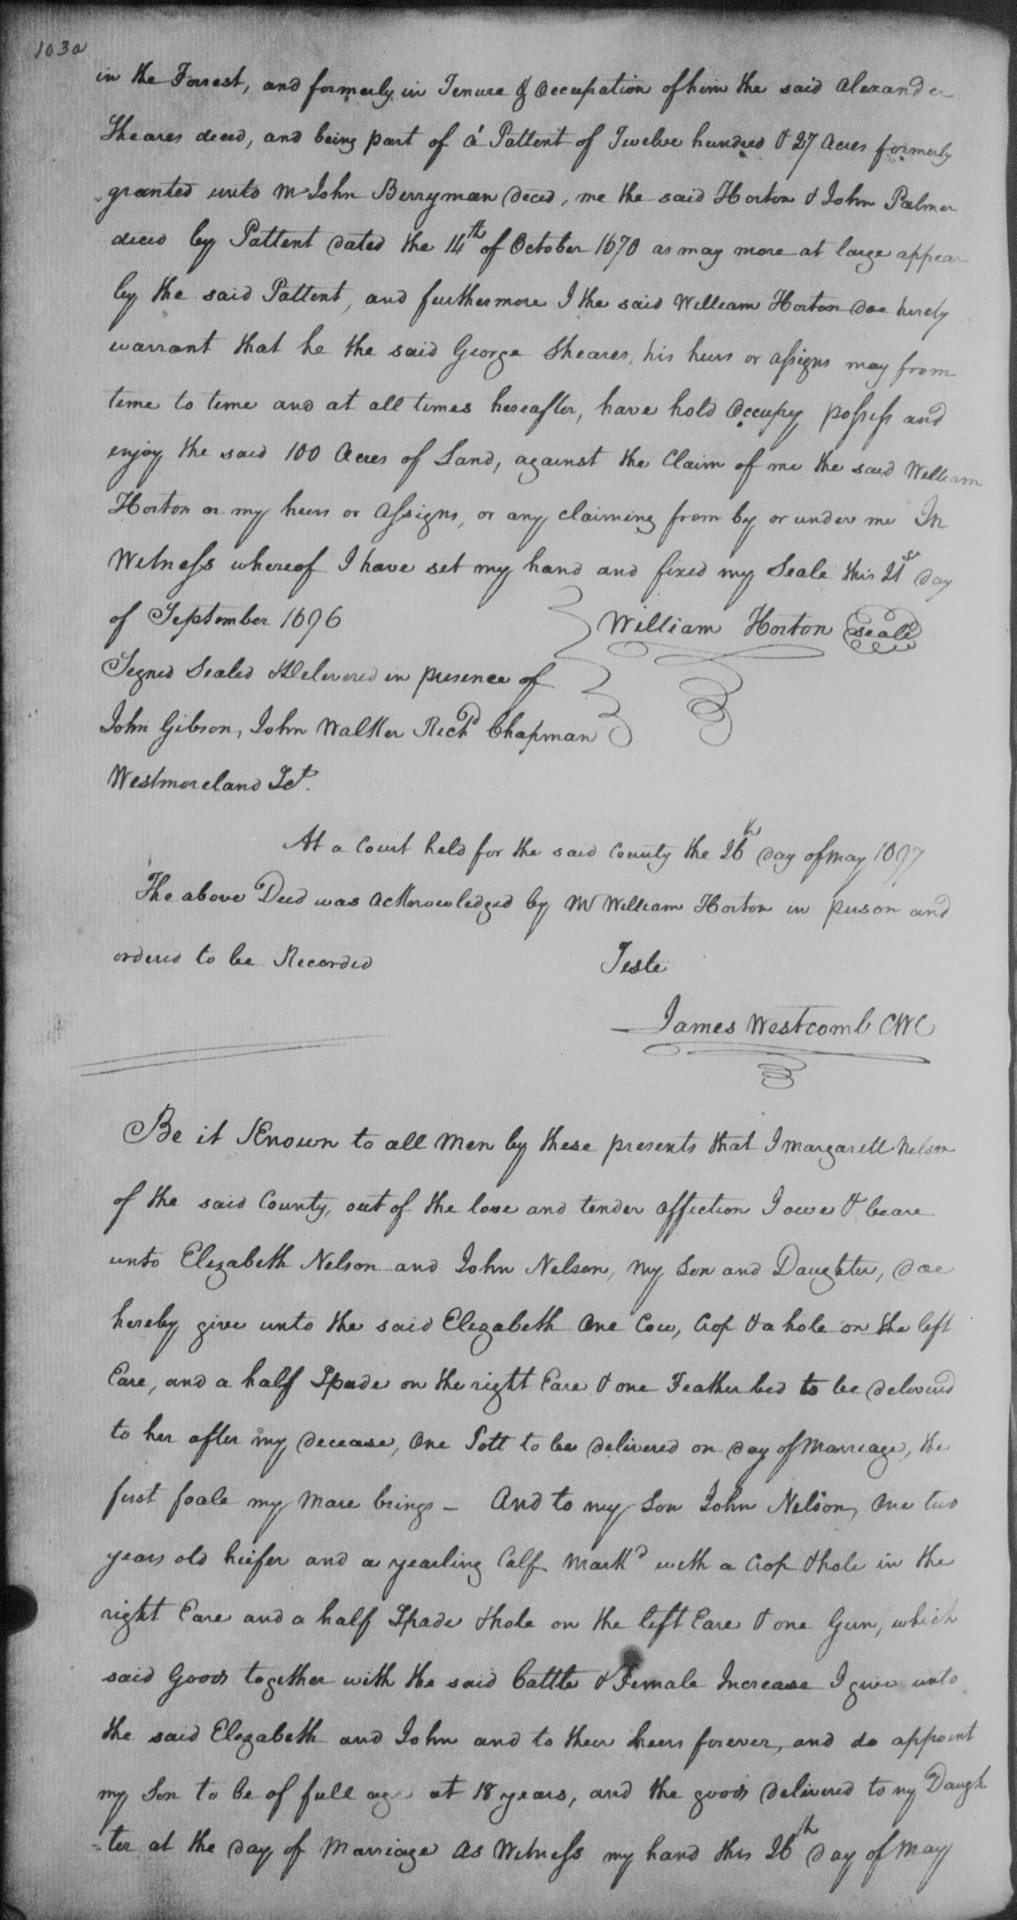 103a
in the Forrest, and formerly in Tenure & Occupation of him the said Alexander
Sheares deced, and being part of a Pattent of Twelve hundred & 27 Acres formerly
granted unto Mr John Berryman deced, me the said Horton & John Palmer
deced by Pattent dated the 14th of October 1670 as may more at large appear
by the said Pattent, and furthermore I the said William Horton doe hereby
warrant that he the said George Sheares, his heirs or assigns may from
time to time and at all times hereafter, have hold Occupy possess and
enjoy the said 100 Acres of Land, against the Claim of me the said William
Horton or my heirs or Assigns, or any claiming from by or under me In
Witness whereof I have set my hand and fixed my Seale this 21st day
of September 1696 William Horton seale
Signed Sealed & Delivered in presence of
John Gibson, John Walker Richd Chapman
Westmoreland Sct.
At a Court held for the said County the 26th day of May 1697
The above Deed was acknowledged by Mr William Horton in person and
ordered to be Recorded Teste
James Westcomb CWC
Be it Known to all Men by these presents that I Margarett Nelson
of the said County, out of the love and tender affection I owe & beare
unto Elizabeth Nelson and John Nelson, my Son and Daughter, doe
hereby give unto the said Elizabeth One Cow, Crop & a hole on the left
Eare, and a half Spade on the right Eare & one Feather bed to be delivered
to her after my decease, One Pott to be delivered on day of Marriage, the
first foale my Mare brings - And to my Son John Nelson, One two
years old heifer and a yearling Calf Markd with a Crop & hole in the
right Eare and a half Spade & hole on the left Eare & one Gun, which
said Goods together with the said Cattle & Female Increase I give unto
the said Elizabeth and John and to their heirs forever, and do appoint
my Son to be of full age at 18 years, and the goods delivered to my Daugh
-ter at the day of Marriage As Witness my hand this 26th day of May